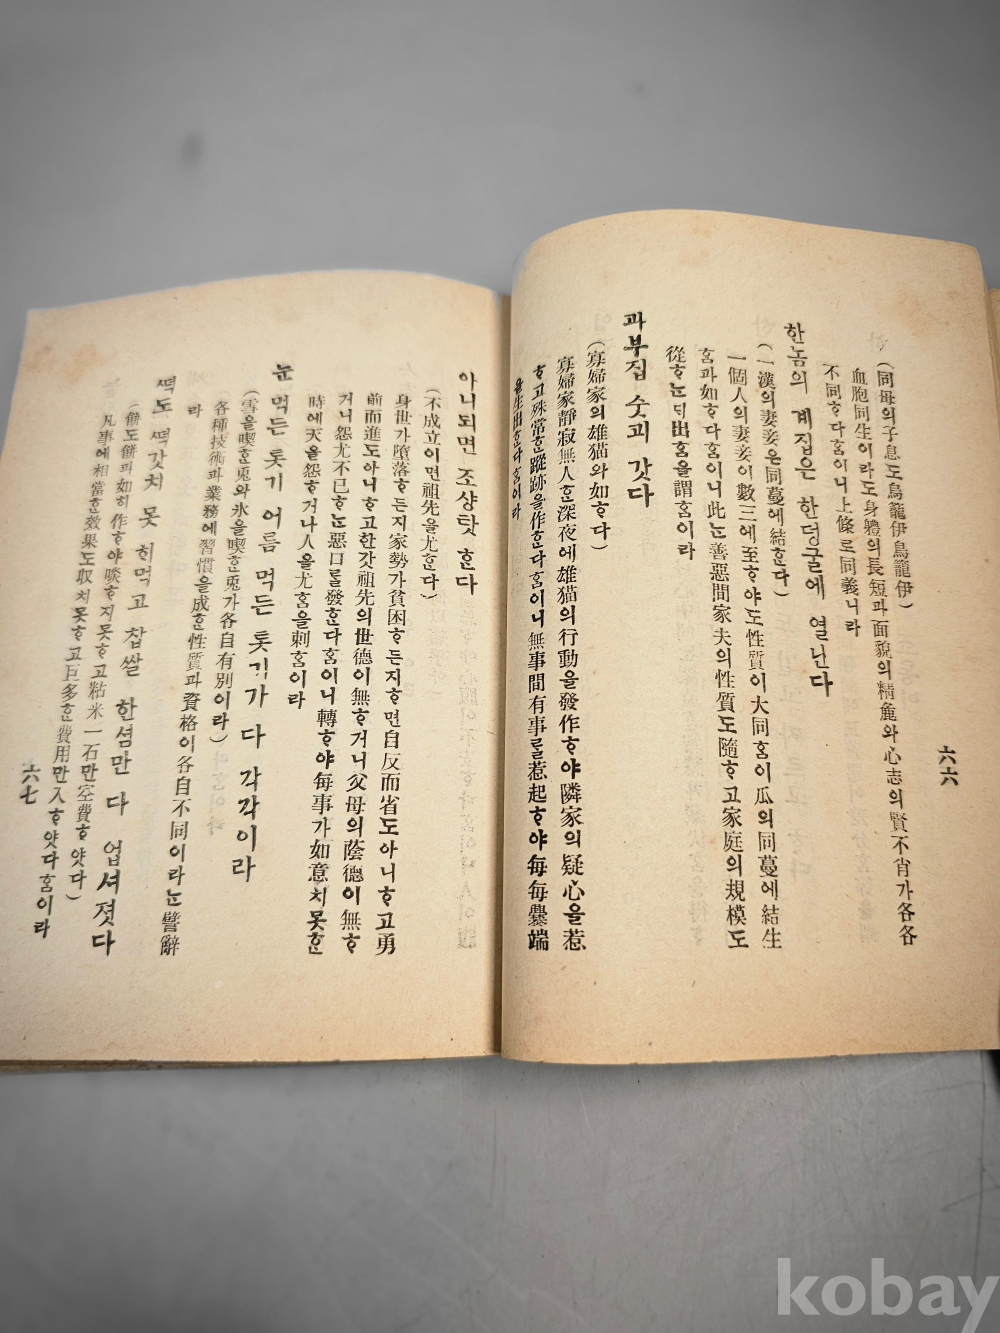 六六
(同母의子息도烏籠伊烏籠伊)
血胞同生이라도身軆의長短과面貌의精麁와心志의賢不肖가各各
不同ᄒᆞ다홈이니上條로同義니라
한놈의 계집은 한덩굴에 열닌다
(一漢의妻妾은同蔓에結ᄒᆞᆫ다)
一個人의妻妾이數三에至ᄒᆞ야도性質이大同홈이瓜의同蔓에結生
홈과如ᄒᆞ다홈이니此ᄂᆞᆫ善惡間家夫의性質도隨ᄒᆞ고家庭의規模도
從ᄒᆞᄂᆞᆫ디出홈을謂홈이라
과부집 숫괴 갓다
(寡婦家의雄猫와如ᄒᆞ다)
寡婦家靜寂無人ᄒᆞᆫ深夜에雄猫의行動을發作ᄒᆞ야隣家의疑心을惹
ᄒᆞ고殊常ᄒᆞᆫ蹤跡을作ᄒᆞᆫ다홈이니無事間有事를惹起ᄒᆞ야每每釁端
을生出ᄒᆞᆫ다홈이라
아니되면 조샹탓 ᄒᆞᆫ다
(不成立이면祖先을尤ᄒᆞᆫ다)
身世가墮落ᄒᆞ든지家勢가貧困ᄒᆞ든지ᄒᆞ면自反而省도아니ᄒᆞ고勇
前而進도아니ᄒᆞ고한갓祖先의世德이無ᄒᆞ거니父母의蔭德이無ᄒᆞ
거니怨尤不已ᄒᆞᄂᆞᆫ惡口를發ᄒᆞᆫ다홈이니轉ᄒᆞ야每事가如意치못ᄒᆞᆫ
時에天을怨ᄒᆞ거나人을尤홈을刺홈이라
눈 먹든 톳기 어름 먹든 톳기가 다 각각이라
(雪을喫ᄒᆞᆫ兎와氷을喫ᄒᆞᆫ兎가各自有別이라)
各種技術과業務에習慣을成ᄒᆞᆫ性質과資格이各自不同이라ᄂᆞᆫ譬辭
라
ᄯᅥᆨ도 ᄯᅥᆨ갓치 못 ᄒᆡ먹고 찹쌀 한셤만 다 업셔졋다
(餠도餠과如히作ᄒᆞ야啖ᄒᆞ지못ᄒᆞ고粘米一石만空費ᄒᆞ얏다)
凡事에相當ᄒᆞᆫ效果도収치못ᄒᆞ고巨多ᄒᆞᆫ費用만入ᄒᆞ얏다홈이라
六七
kobay